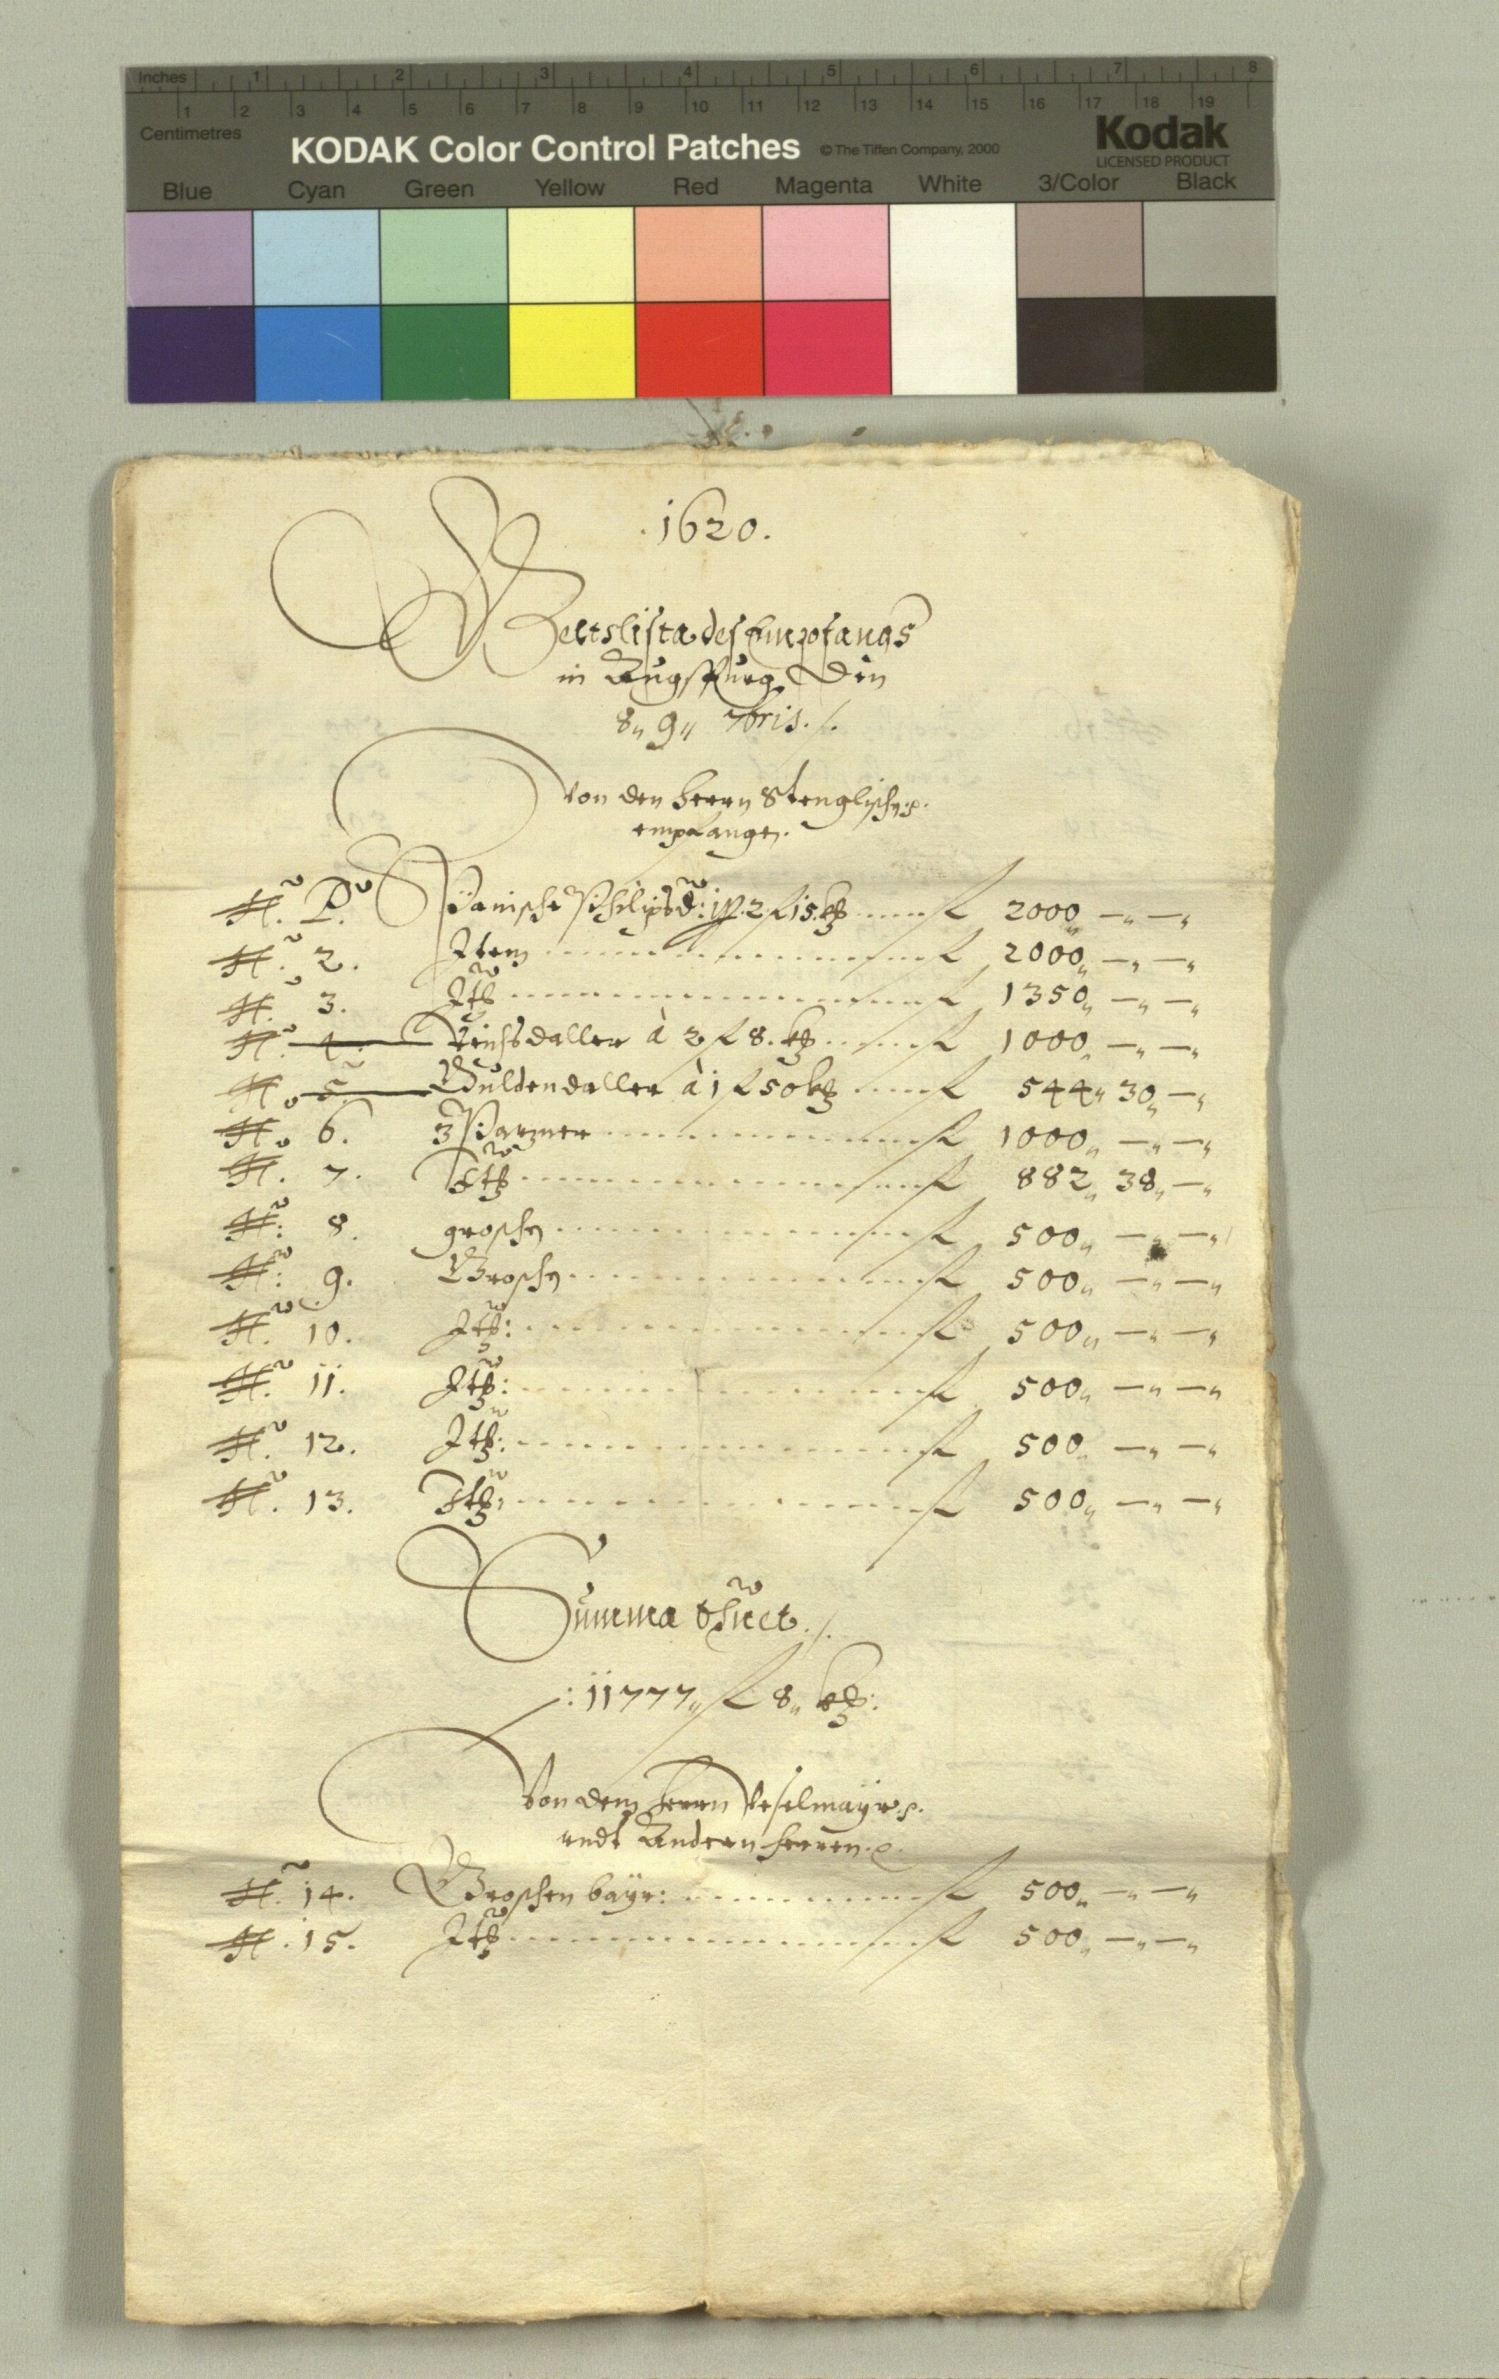 Inches 1 2 3 4 5 6 7 8
1 2 3 4 5 6 7 8 9 10 11 12 13 14 15 16 17 18 19
Centimetres
KODAK Color Control Patches © The Tiffen Company, 2000 Kodak
LICENSED PRODUCT
Blue Cyan Green Yellow Red Magenta White 3/Color Black
.1620.
Geltslista des Empfangs
in Augspurg Den
8,, 9,, 7bris ./.
Von den Herrn Stenglischen
empfangen.
N. P. Spanische Philipsd: 2 fl 15 kr fl 2000,, —,, —,,
N. 2. Item fl 2000,, —,, —,,
N. 3. Itt fl 1350,, —,, —,,
N. 4. Reichsdaller à 2 fl 8. kr fl 1000,, —,, —,,
N. 5. Guldendaller à 1 fl 50 kr fl 544,, 30,, —,,
N. 6. 3 Pazner fl 1000,, —,, —,,
N. 7. Itt fl 882,, 38,, —,,
N: 8. groschen fl 500,, —,, —,,
N: 9. Groschen fl 500,, —,, —,,
N. 10. Itt: fl 500,, —,, —,,
N. 11. Itt: fl 500,, —,, —,,
N. 12. Itt: fl 500,, —,, —,,
N. 13. Itt: fl 500,, —,, —,,
Summa thuet ./.
:11777,, fl 8,, kr:
Von dem Herrn Veselmayr
undt Andern Herren
N. 14. Groschen bayr: fl 500,, —,, —,,
N. 15. Itt fl 500,, —,, —,,